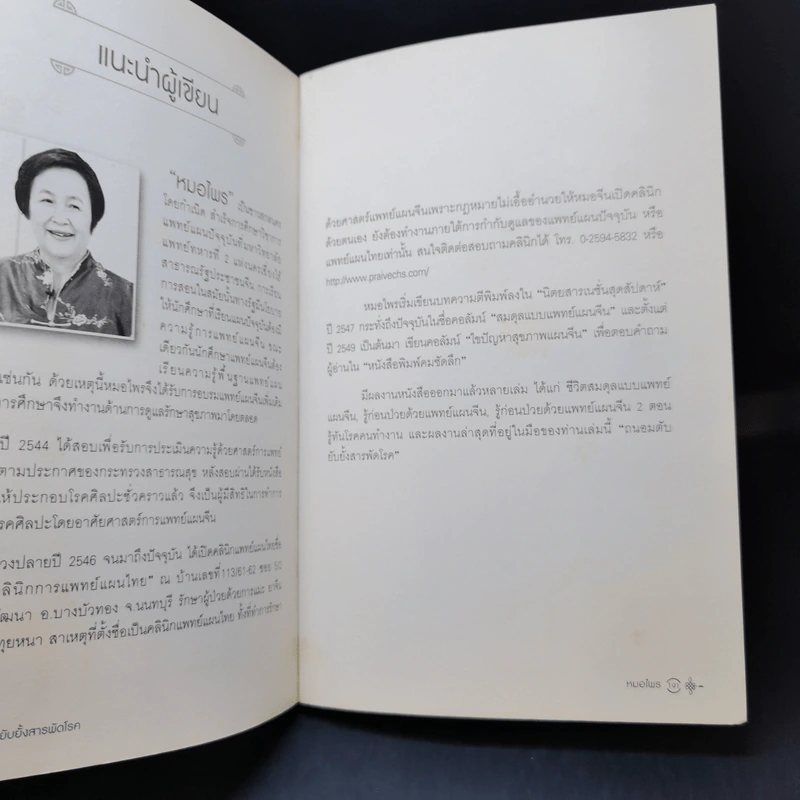 แนะนำผู้เขียน
"หมอไพร" เป็นชาวสกลนคร
โดยกำเนิด สำเร็จการศึกษาวิชาการ
แพทย์แผนปัจจุบันที่มหาวิทยาลัย
แพทย์ทหารที่ 2 แห่งนครเซี่ยงไฮ้
สาธารณรัฐประชาชนจีน การเรียน
การสอนในสมัยนั้นทางรัฐมีนโยบาย
ให้นักศึกษาที่เรียนแผนปัจจุบันต้องมี
ความรู้การแพทย์แผนจีน ขณะ
เดียวกันนักศึกษาแพทย์แผนจีนต้อง
เรียนความรู้พื้นฐานแพทย์แผน
เช่นกัน ด้วยเหตุนี้หมอไพรจึงได้รับการอบรมแพทย์แผนจีนเพิ่มเติม
การศึกษาจึงทำงานด้านการดูแลรักษาสุขภาพมาโดยตลอด
ปี 2544 ได้สอบเพื่อรับการประเมินความรู้ด้วยศาสตร์การแพทย์
ตามประกาศของกระทรวงสาธารณสุข หลังสอบผ่านได้รับหนังสือ
ให้ประกอบโรคศิลปะชั่วคราวแล้ว จึงเป็นผู้มีสิทธิในการทำการ
รคศิลปะโดยอาศัยศาสตร์การแพทย์แผนจีน
วงปลายปี 2546 จนมาถึงปัจจุบัน ได้เปิดคลินิกแพทย์แผนไทยชื่อ
ลินิกการแพทย์แผนไทย" ณ บ้านเลขที่ 113/61-62 ซอย
ัฒนา อ.บางบัวทอง จ.นนทบุรี รักษาผู้ป่วยด้วยการแมะ ยาจีน
ทุยหนา สาเหตุที่ตั้งชื่อเป็นคลินิกแพทย์แผนไทย ทั้งที่ทำการรักษา
ยับยั้งสารพัดโรค
ด้วยศาสตร์แพทย์แผนจีนเพราะกฎหมายไม่เอื้ออำนวยให้หมอจีนเปิดคลินิก
ด้วยตนเอง ยังต้องทำงานภายใต้การกำกับดูแลของแพทย์แผนปัจจุบัน หรือ
แพทย์แผนไทยเท่านั้น สนใจติดต่อสอบถามคลินิกได้ โทร. 0-2594-5832 หรือ
http://www.praivechs.com/
หมอไพรเริ่มเขียนบทความตีพิมพ์ลงใน "นิตยสารเนชั่นสุดสัปดาห์"
ปี 2547 กระทั่งถึงปัจจุบันในชื่อคอลัมน์ "สมดุลแบบแพทย์แผนจีน" และตั้งแต่
ปี 2549 เป็นต้นมา เขียนคอลัมน์ "ไขปัญหาสุขภาพแผนจีน" เพื่อตอบคำถาม
ผู้อ่านใน "หนังสือพิมพ์คมชัดลึก"
มีผลงานหนังสือออกมาแล้วหลายเล่ม ได้แก่ ชีวิตสมดุลแบบแพทย์
แผนจีน, รู้ก่อนป่วยด้วยแพทย์แผนจีน, รู้ก่อนป่วยด้วยแพทย์แผนจีน 2 ตอน
รู้ทันโรคคนทำงาน และผลงานล่าสุดที่อยู่ในมือของท่านเล่มนี้ "ถนอมตับ
ยับยั้งสารพัดโรค"
หมอไพร 191